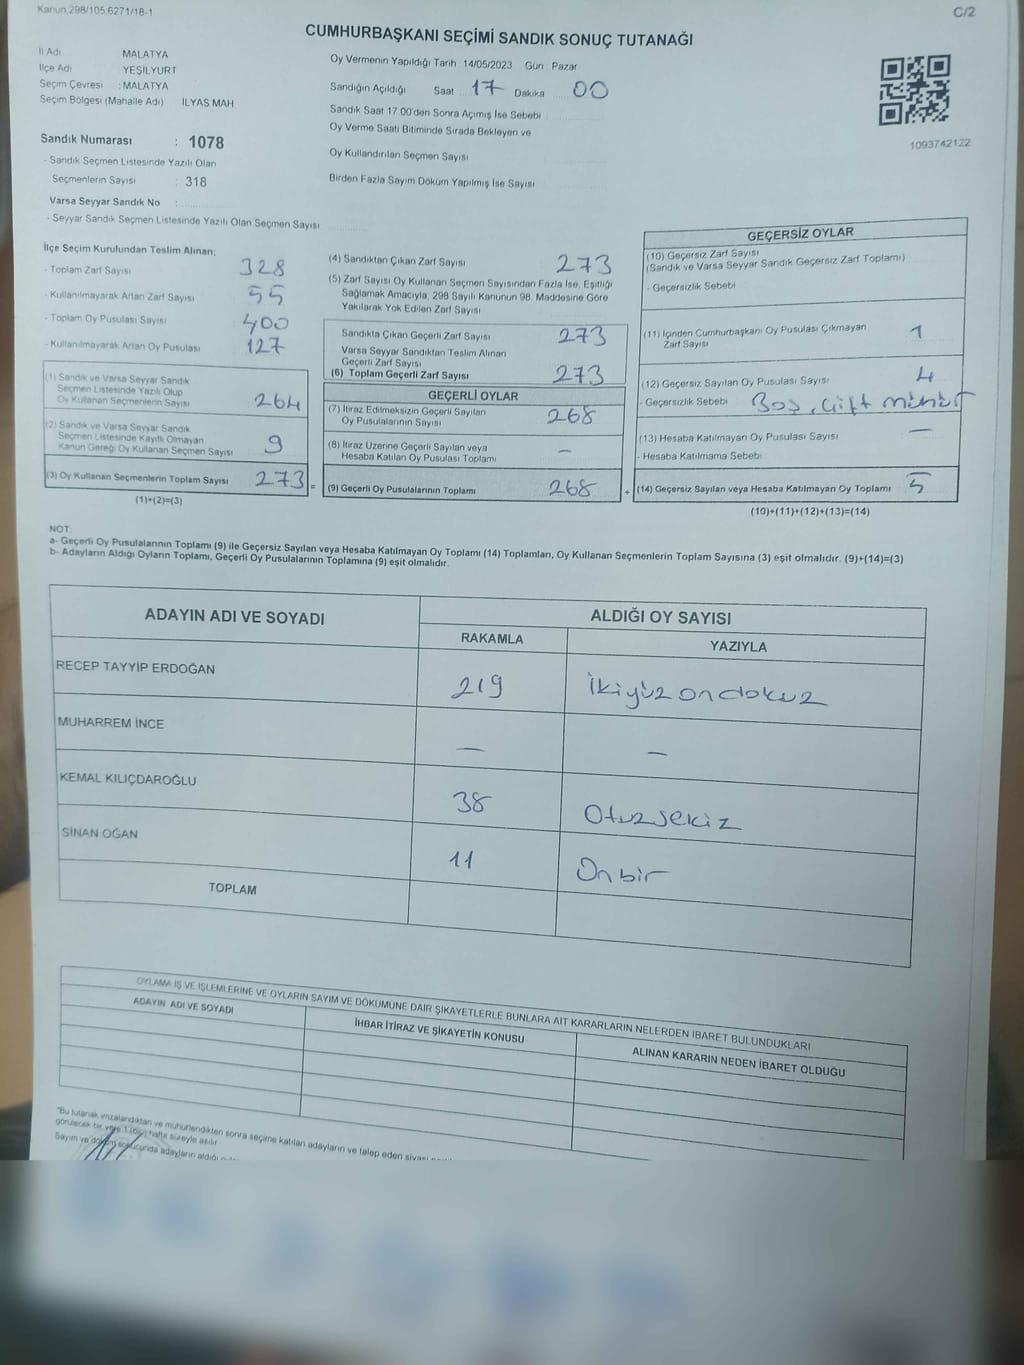 Kanun,298/105,6271/18-1
C/2
CUMHURBAŞKANI SEÇİMİ SANDIK SONUÇ TUTANAĞI
İl Adı MALATYA
İlçe Adı YEŞİLYURT
Seçim Çevresi : MALATYA
Seçim Bölgesi (Mahalle Adı) İLYAS MAH
Oy Vermenin Yapıldığı Tarih 14/05/2023 Gün Pazar
Sandığın Açıldığı Saat 17 Dakika 00
Sandık Saat 17 00'den Sonra Açımış İse Sebebi
Oy Verme Saati Bitiminde Sırada Bekleyen ve
Oy Kullandırılan Seçmen Sayısı
Birden Fazla Sayım Döküm Yapılmış İse Sayısı
1093742122
Sandık Numarası : 1078
- Sandık Seçmen Listesinde Yazılı Olan
Seçmenlerin Sayısı : 318
Varsa Seyyar Sandık No :
- Seyyar Sandık Seçmen Listesinde Yazılı Olan Seçmen Sayısı
İlçe Seçim Kurulundan Teslim Alınan;
- Toplam Zarf Sayısı 328
- Kullanılmayarak Artan Zarf Sayısı 55
- Toplam Oy Pusulası Sayısı 400
- Kullanılmayarak Artan Oy Pusulası 127
(1) Sandık ve Varsa Seyyar Sandık
Seçmen Listesinde Yazılı Olup
Oy Kullanan Seçmenlerin Sayısı 264
(2) Sandık ve Varsa Seyyar Sandık
Seçmen Listesinde Kayıtlı Olmayan
Kanun Gereği Oy Kullanan Seçmen Sayısı 9
(3) Oy Kullanan Seçmenlerin Toplam Sayısı 273 =
(1)+(2)=(3)
(4) Sandıktan Çıkan Zarf Sayısı 273
(5) Zarf Sayısı Oy Kullanan Seçmen Sayısından Fazla İse, Eşitliği
Sağlamak Amacıyla, 298 Sayılı Kanunun 98. Maddesine Göre
Yakılarak Yok Edilen Zarf Sayısı
Sandıkta Çıkan Geçerli Zarf Sayısı 273
Varsa Seyyar Sandıktan Teslim Alınan
Geçerli Zarf Sayısı
(6) Toplam Geçerli Zarf Sayısı 273
GEÇERLİ OYLAR
(7) İtiraz Edilmeksizin Geçerli Sayılan
Oy Pusulalarının Sayısı 268
(8) İtiraz Üzerine Geçerli Sayılan veya
Hesaba Katılan Oy Pusulası Toplamı –
(9) Geçerli Oy Pusulalarının Toplamı 268 +
GEÇERSİZ OYLAR
(10) Geçersiz Zarf Sayısı
(Sandık ve Varsa Seyyar Sandık Geçersiz Zarf Toplamı)
- Geçersizlik Sebebi
(11) İçinden Cumhurbaşkanı Oy Pusulası Çıkmayan
Zarf Sayısı 1
(12) Geçersiz Sayılan Oy Pusulası Sayısı 4
- Geçersizlik Sebebi Boş, Çift mühür
(13) Hesaba Katılmayan Oy Pusulası Sayısı –
- Hesaba Katılmama Sebebi
(14) Geçersiz Sayılan veya Hesaba Katılmayan Oy Toplamı 5
(10)+(11)+(12)+(13)=(14)
NOT:
a- Geçerli Oy Pusulalarının Toplamı (9) ile Geçersiz Sayılan veya Hesaba Katılmayan Oy Toplamı (14) Toplamları, Oy Kullanan Seçmenlerin Toplam Sayısına (3) eşit olmalıdır. (9)+(14)=(3)
b- Adayların Aldığı Oyların Toplamı, Geçerli Oy Pusulalarının Toplamına (9) eşit olmalıdır.
ADAYIN ADI VE SOYADI ALDIĞI OY SAYISI
RAKAMLA YAZIYLA
RECEP TAYYİP ERDOĞAN 219 İkiyüz on dokuz
MUHARREM İNCE – –
KEMAL KILIÇDAROĞLU 38 Otuzsekiz
SİNAN OĞAN 11 On bir
TOPLAM
OYLAMA İŞ VE İŞLEMLERİNE VE OYLARIN SAYIM VE DÖKÜMÜNE DAİR ŞİKAYETLERLE BUNLARA AİT KARARLARIN NELERDEN İBARET BULUNDUKLARI
ADAYIN ADI VE SOYADI İHBAR İTİRAZ VE ŞİKAYETİN KONUSU ALINAN KARARIN NEDEN İBARET OLDUĞU
"Bu tutanak imzalandıktan ve mühürlendikten sonra seçime katılan adayların ve talep eden siyasi
görülecek bir yere 1 (bir) hafta süreyle asılır
Sayım ve döküm sonucunda adayların aldığı